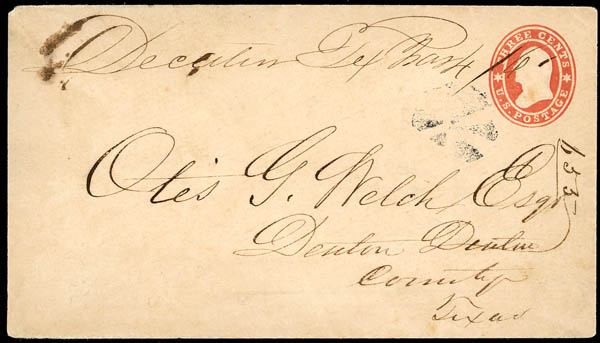 Decatur Tex
THREE CENTS
U.S. POSTAGE
Otis G. Welch Esqr
Denton Denton
County
Texas